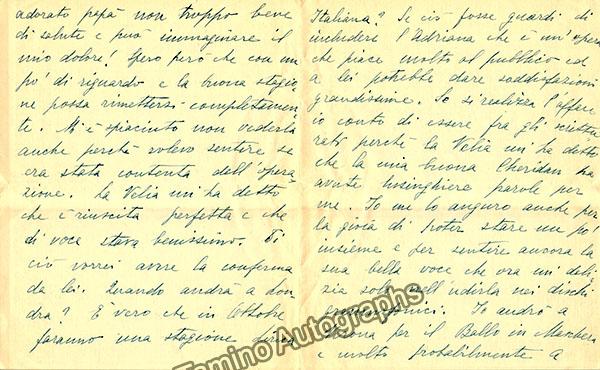 adorato papà non troppo bene
di salute e può immaginare il
mio dolore! Spero però che con un
po' di riguardo e la buona stagio
ne possa rimettersi completamen
te. Mi è spiaciuto non vederla
anche perché volevo sentire se
era stata contenta dell'opera
zione. La Velia m'ha detto
che è riuscita perfetta e che
di voce stava benissimo. Di
ciò vorrei avere la conferma
da lei. Quando andrà a Lon
dra? È vero che in Ottobre
faranno una stagione lirica
Italiana? Se ciò fosse guardi di
includere l'Adriana che è un'opera
che piace molto al pubblico ed
a lei potrebbe dare soddisfazioni
grandissime. Se si realizza
conto di essere fra gli scrittu
rati perché la Velia m'ha detto
che la mia buona Sheridan ha
avute lusinghiere parole per
me. Io me lo auguro anche per
la gioia di poter stare un po'
insieme e per sentire ancora la
sua bella voce che ora m'è deli
zia solo nell'udirla nei dischi
grammofonici. Io andrò a
per il Ballo in Maschera
e molto probabilmente a
Tamino Autographs